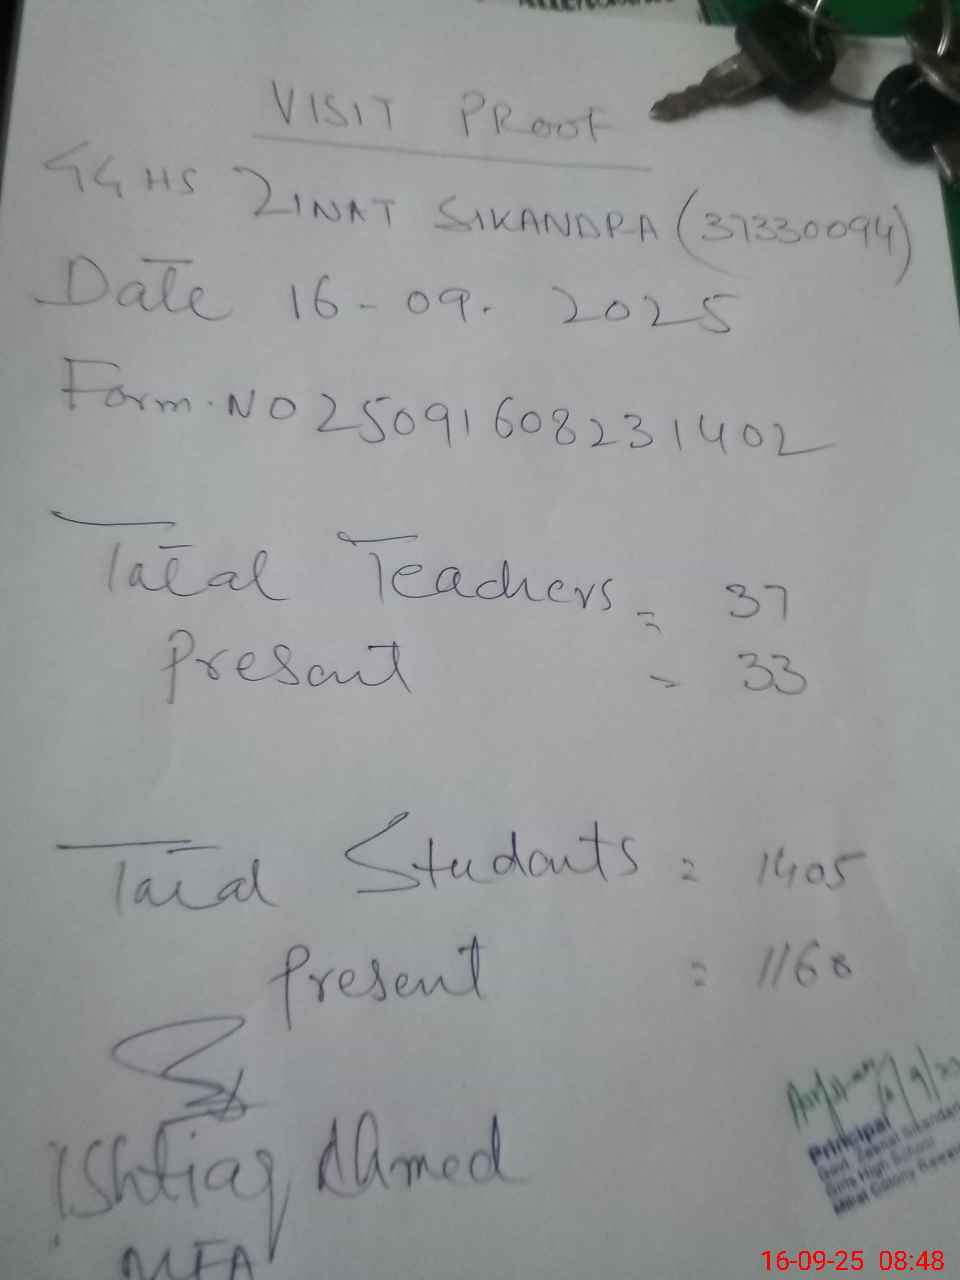 VISIT PROOF
GGHS ZINAT SIKANDRA (37330094)
Date 16-09-2025
Form.NO 25091608231402
Total Teachers = 37
Present = 33
Total Students = 1405
Present = 1168
Ishtiaq Ahmed
MEA
Principal
Govt. Zeenat Sikandar
Girls High School
16-09-25 08:48